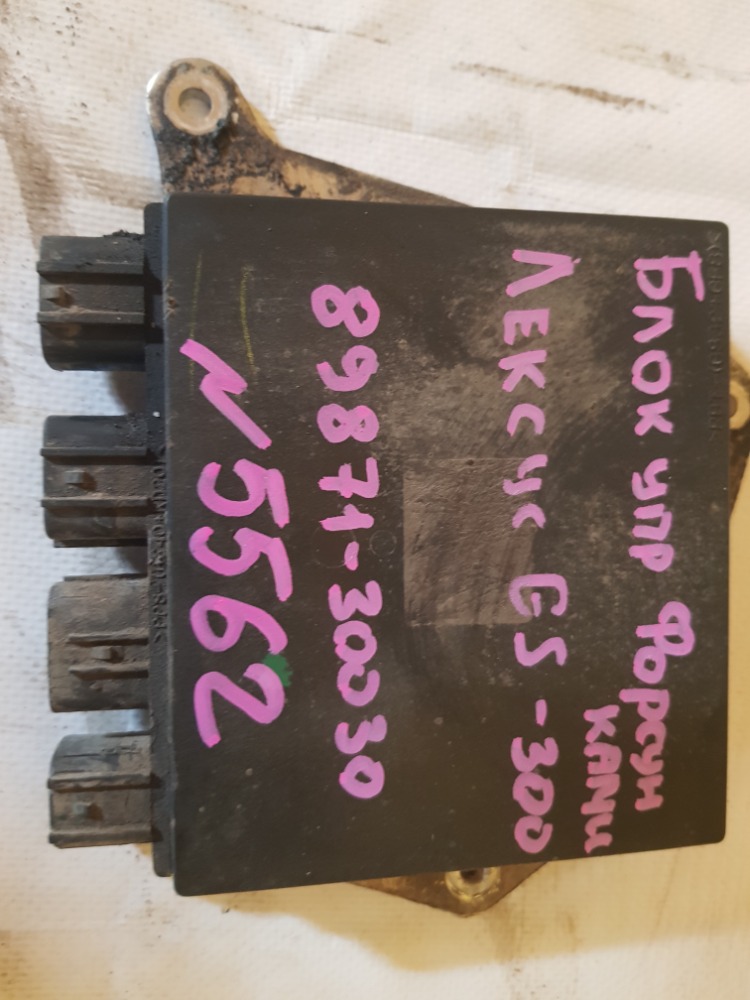 Блок упр Форсун
ками
Лексус GS-300
89871-30030
N5562